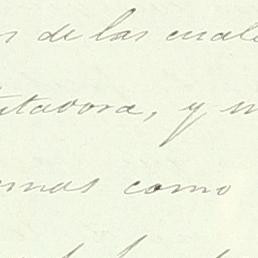 de las cuale
tadora, y
mas como